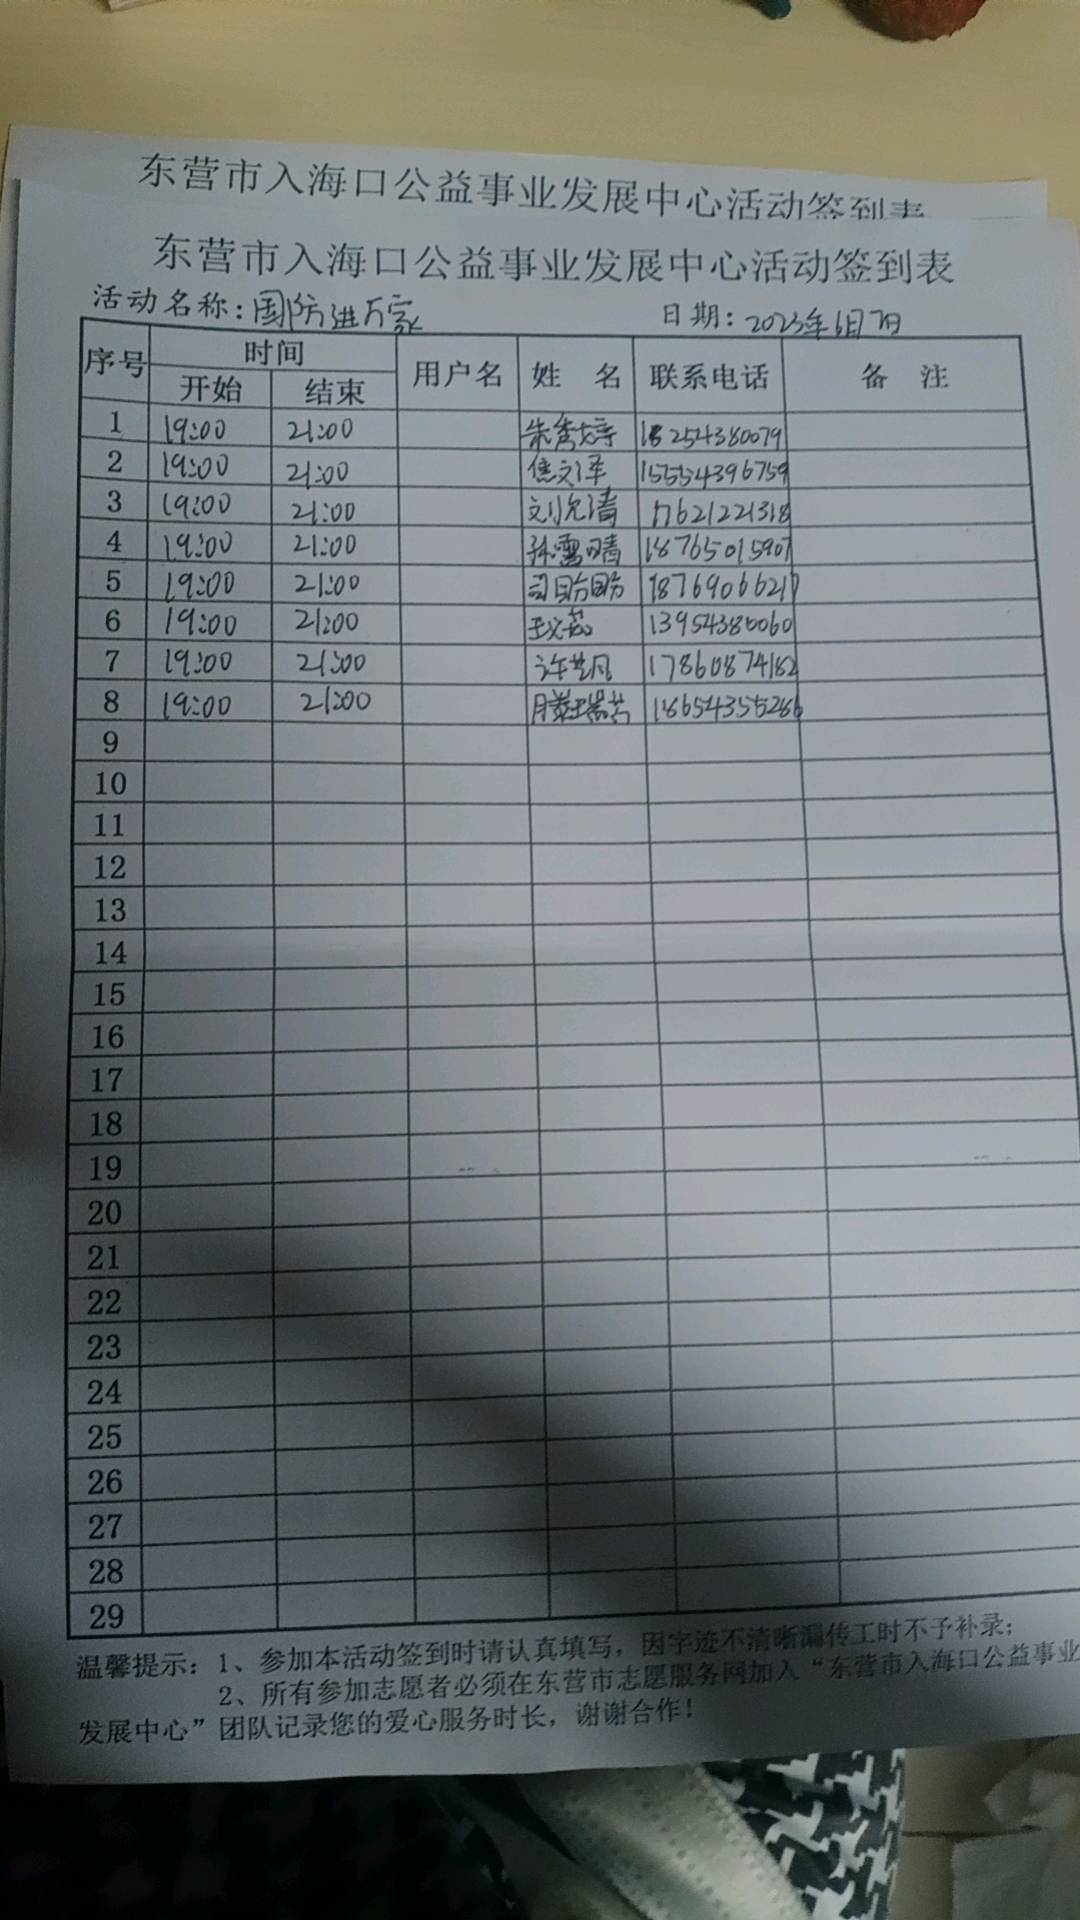 东营市入海口公益事业发展中心活动签到表
东营市入海口公益事业发展中心活动签到表
活动名称：国防进万家 日期：2023年6月7日
序号 时间 用户名 姓 名 联系电话 备 注
开始 结束
1 19:00 21:00 朱秀婷 18254380079
2 19:00 21:00 焦文泽 15554396759
3 19:00 21:00 刘允清 17621221318
4 19:00 21:00 孙雪晴 18765015907
5 19:00 21:00 18769066217
6 19:00 21:00 13954380060
7 19:00 21:00 许艺凡 17860874182
8 19:00 21:00 滕瑞芸 18654355286
9
10
11
12
13
14
15
16
17
18
19
20
21
22
23
24
25
26
27
28
29
温馨提示：1、参加本活动签到时请认真填写，因字迹不清晰漏传工时不予补录；
2、所有参加志愿者必须在东营市志愿服务网加入“东营市入海口公益事业
发展中心”团队记录您的爱心服务时长，谢谢合作！